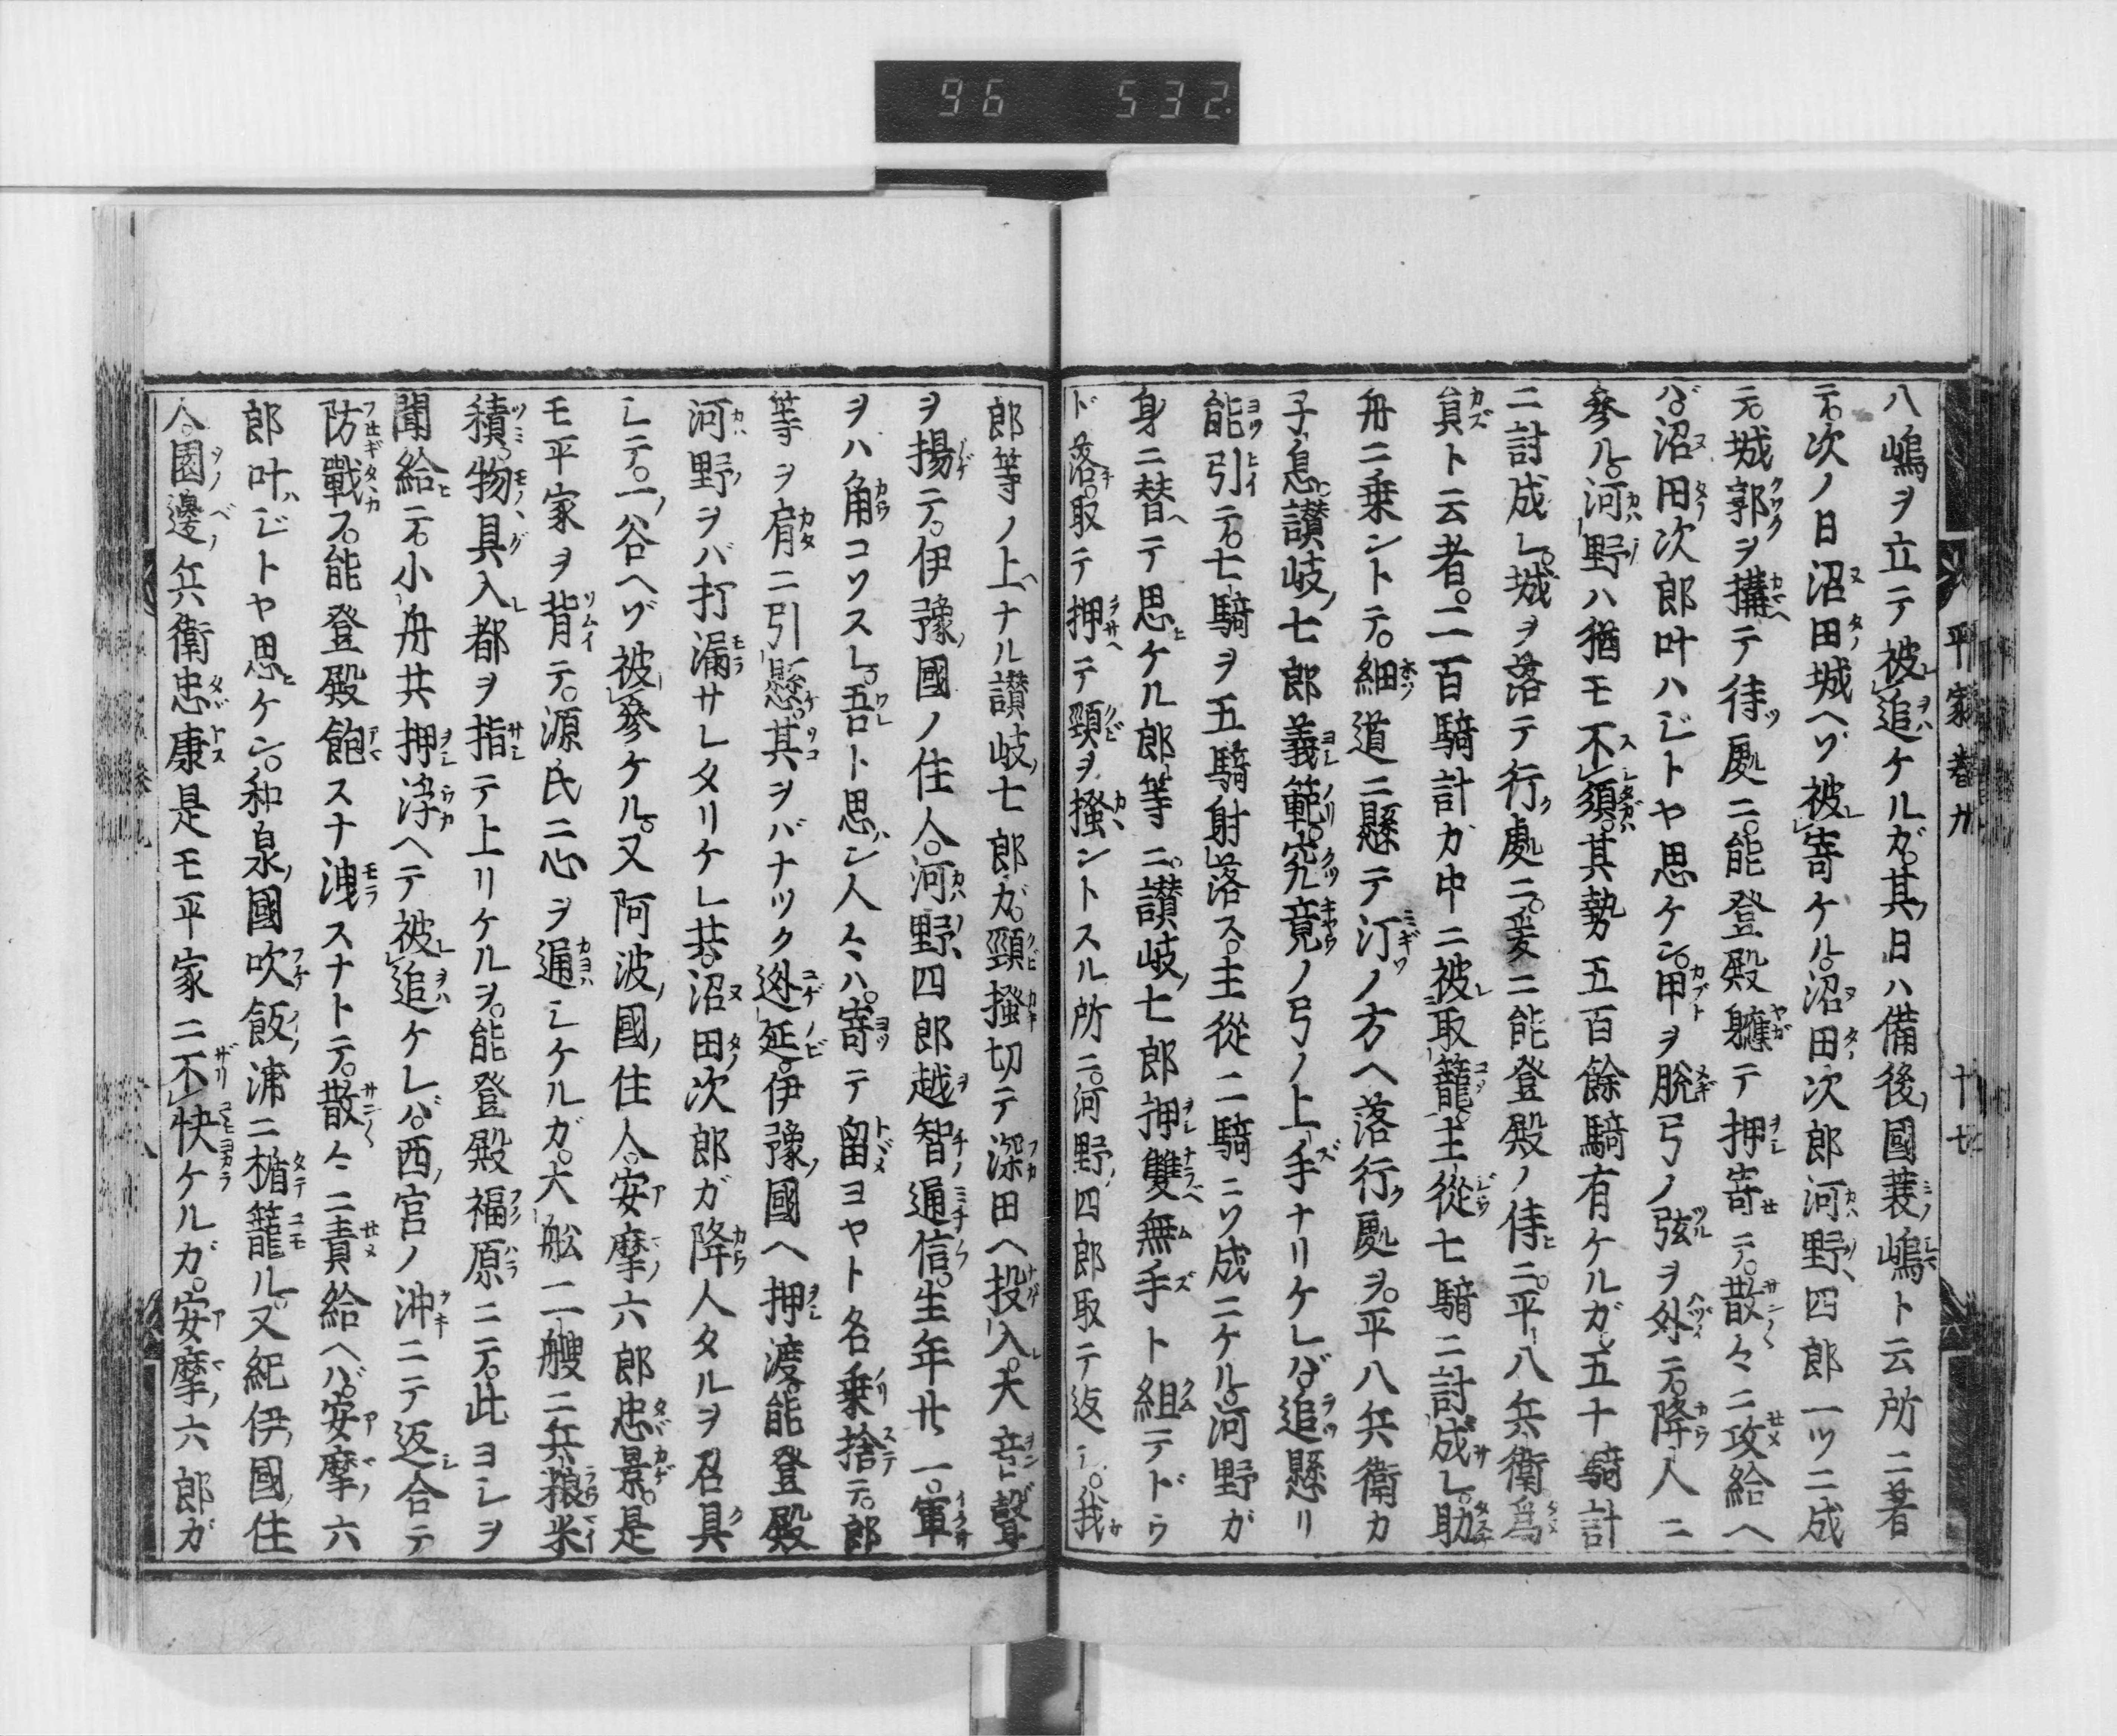 96 532
平家巻九 十七
八嶋ヲ立テ被追ケルガ。其日ハ備後國蓑嶋ト云所ニ著
テ。次ノ日沼田城ヘゾ被寄ケル。沼田次郎河野四郎一ツニ成
テ。城郭ヲ搆テ待處ニ。能登殿軈テ押寄テ。散々ニ攻給ヘ
バ。沼田次郎叶ハジトヤ思ケン。甲ヲ脱弓ノ弦ヲ外テ。降人ニ
參ル。河野ハ猶モ不須。其勢五百餘騎有ケルガ。五十騎計
ニ討成レ。城ヲ落テ行處ニ。爰ニ能登殿ノ侍ニ。平八兵衛爲
員ト云者。二百騎計ガ中ニ被取籠。主從七騎ニ討成レ。助
舟ニ乗ントテ。細道ニ懸テ汀ノ方ヘ落行處ヲ。平八兵衛カ
子息。讃岐七郎義範。究竟ノ弓ノ上手ナリケレバ。追懸リ
能引テ。七騎ヲ五騎射落ス。主從二騎ニゾ成ニケル。河野ガ
身ニ替テ思ケル郎等ニ。讃岐七郎押雙無手ト組テドウ
ド落。取テ押テ頸ヲ掻ントスル所ニ。河野四郎取テ返シ。我
郎等ノ上ナル讃岐七郎ガ。頸掻切テ深田ヘ投入。大音聲
ヲ揚テ。伊豫國ノ住人。河野四郎越智通信。生年廿一。軍
ヲハ角コソスレ。吾ト思ン人々ハ。寄テ留ヨヤト名乗捨テ。郎
等ヲ肩ニ引懸。其ヲバナツク迯延。伊豫國ヘ押渡。能登殿
河野ヲバ打漏サレタリケレ共。沼田次郎ガ降人タルヲ召具
シテ。一谷ヘゾ被參ケル。又阿波國住人。安摩六郎忠景。是
モ平家ヲ背テ。源氏ニ心ヲ通シケルガ。大舩二艘ニ兵粮米
積物具入都ヲ指テ上リケルヲ。能登殿福原ニテ。此ヨシヲ
聞給テ。小舟共押浮ヘテ被追ケレバ。西宮ノ沖ニテ返合テ
防戰フ。能登殿飽スナ洩スナトテ。散々ニ責給ヘバ。安摩六
郎叶ハジトヤ思ケン。和泉國吹飯浦ニ楯籠ル。又紀伊國住
人。園邊兵衛忠康是モ平家ニ不快ケルガ。安摩六郎ガ